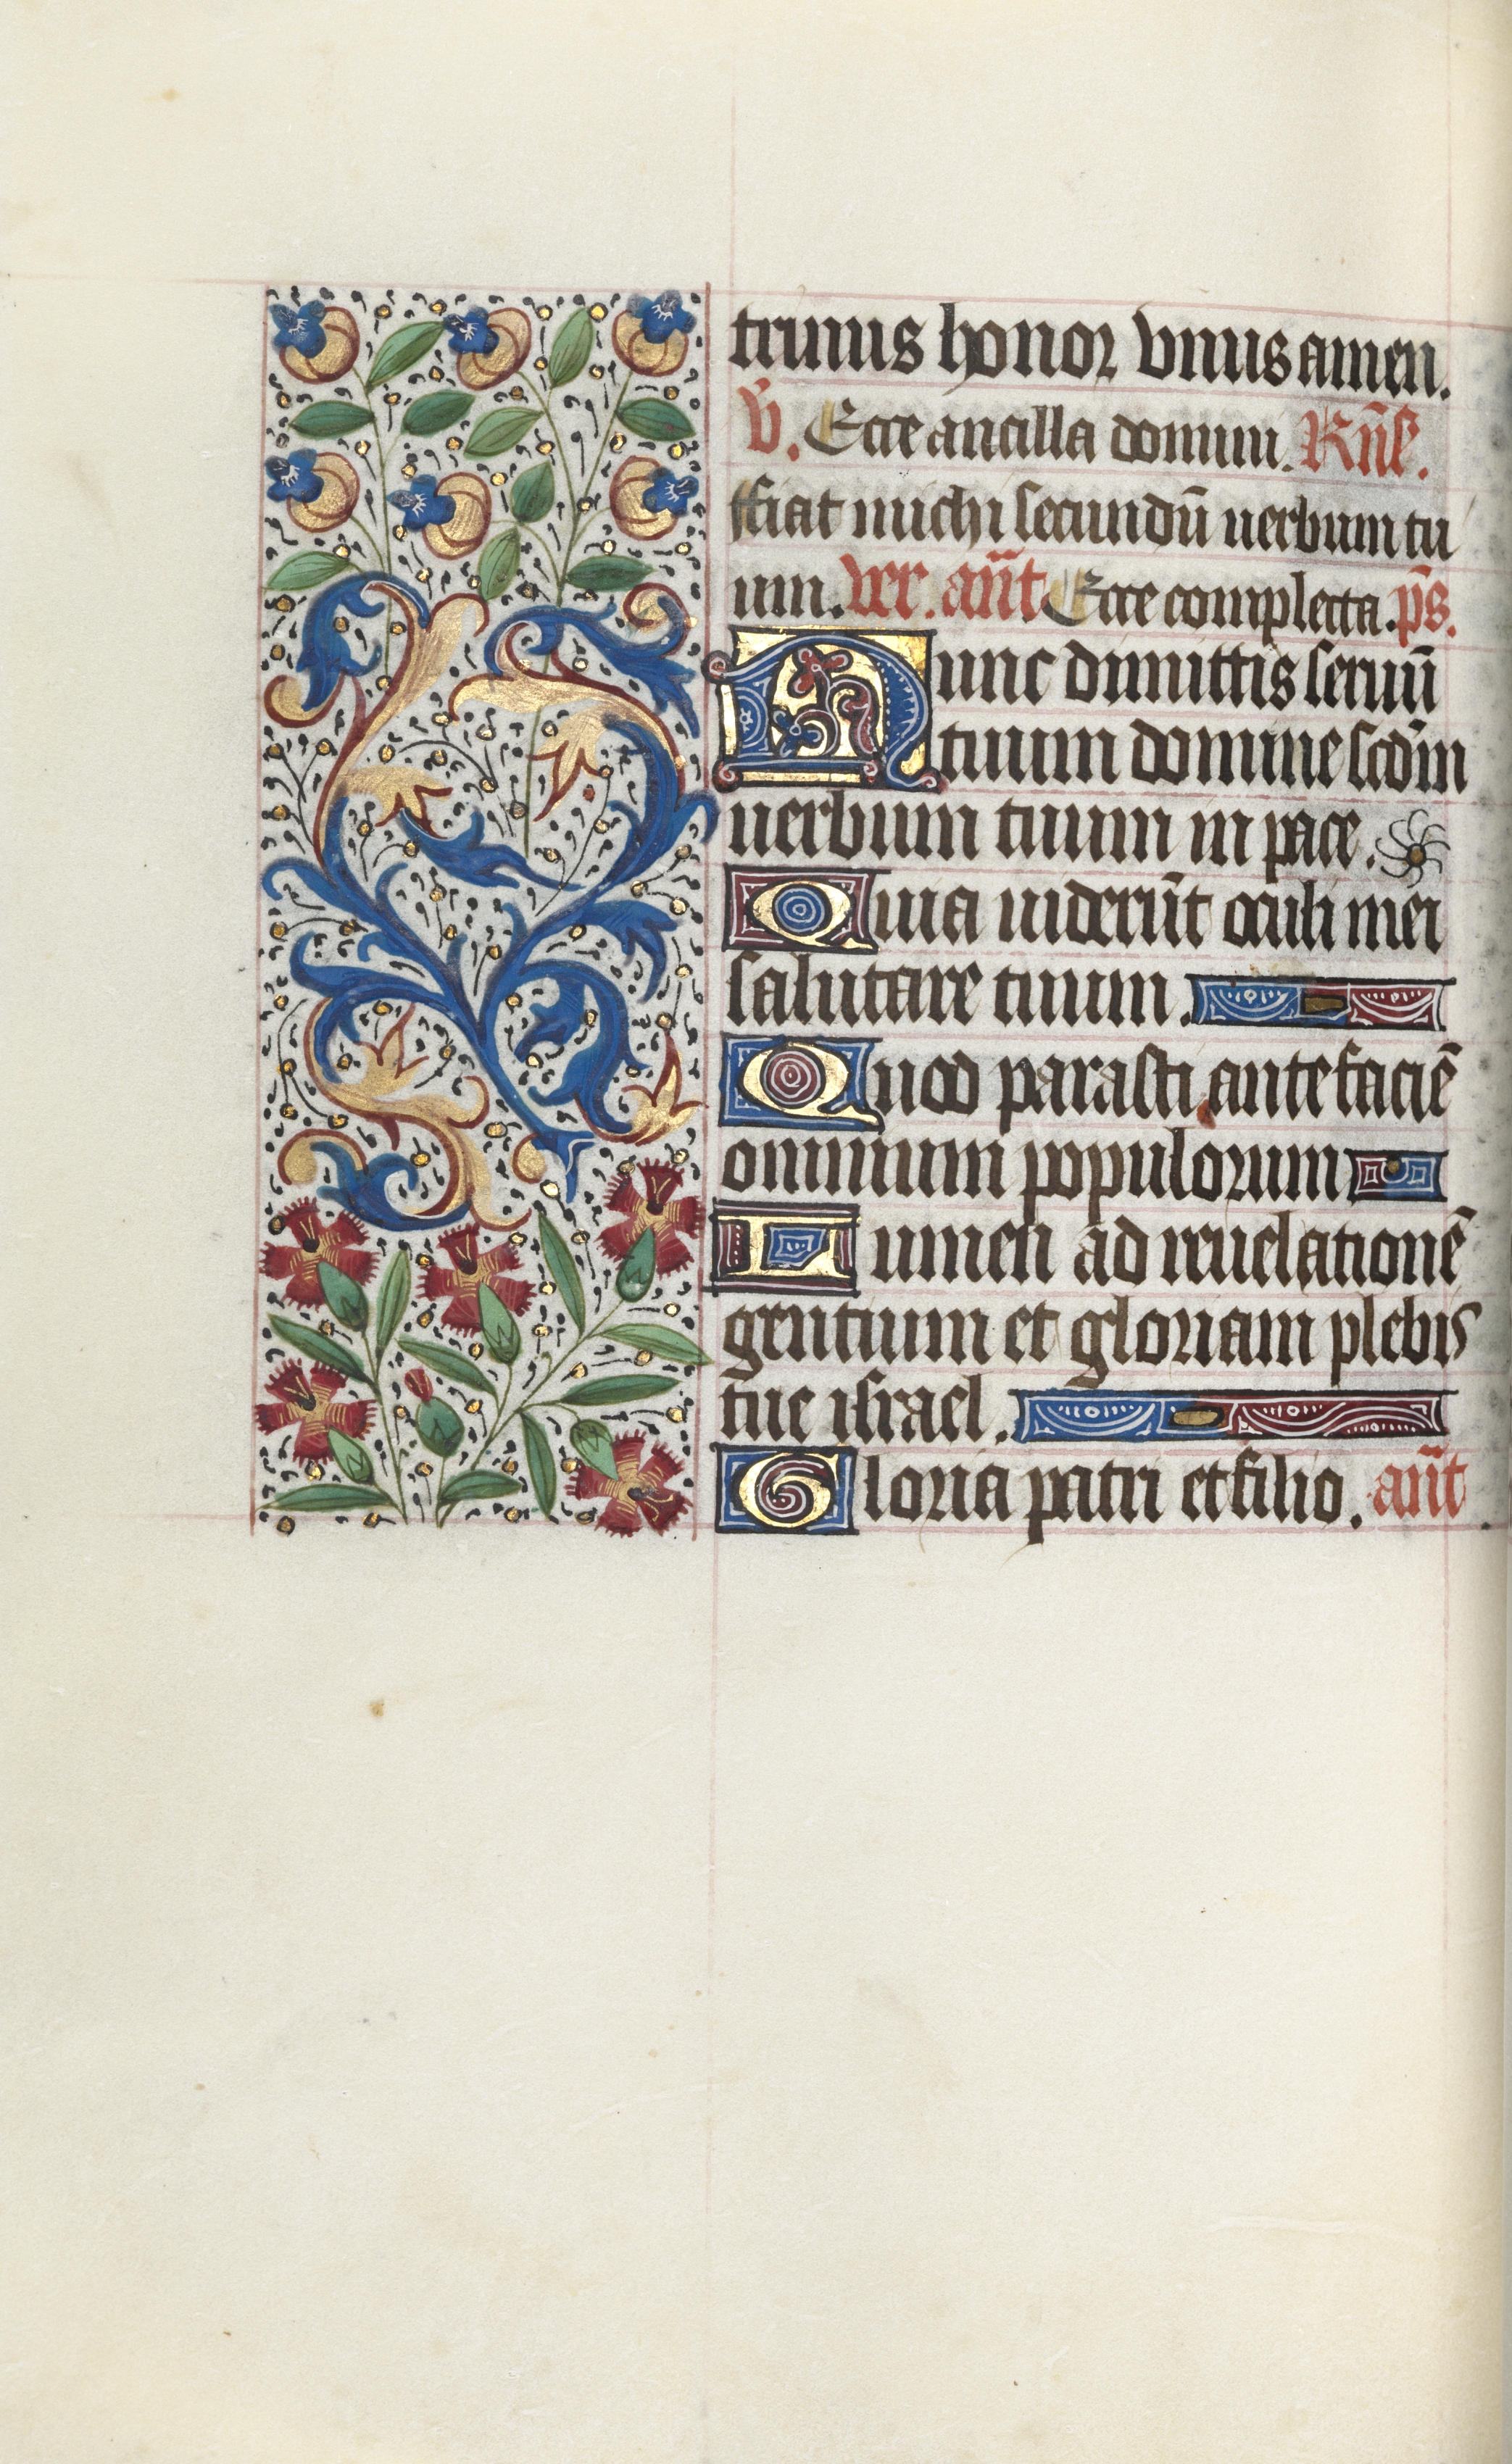 trinus honor vnus amen.
v̄. Ecce ancilla domini. Rn̄se.
ffiat michi secundū uerbum tu
um. ver. an̄t Ecce completa. ps̄.
Nunc dimittis seruū
tuum domine scd̄m
uerbum tuum in pace.
Quia uiderūt oculi mei
salutare tuum.
Quod parasti ante faciē
omnium populorum
Lumen ad reuelationē
gentium et gloriam plebis
tue israel.
Gloria patri et filio. an̄t